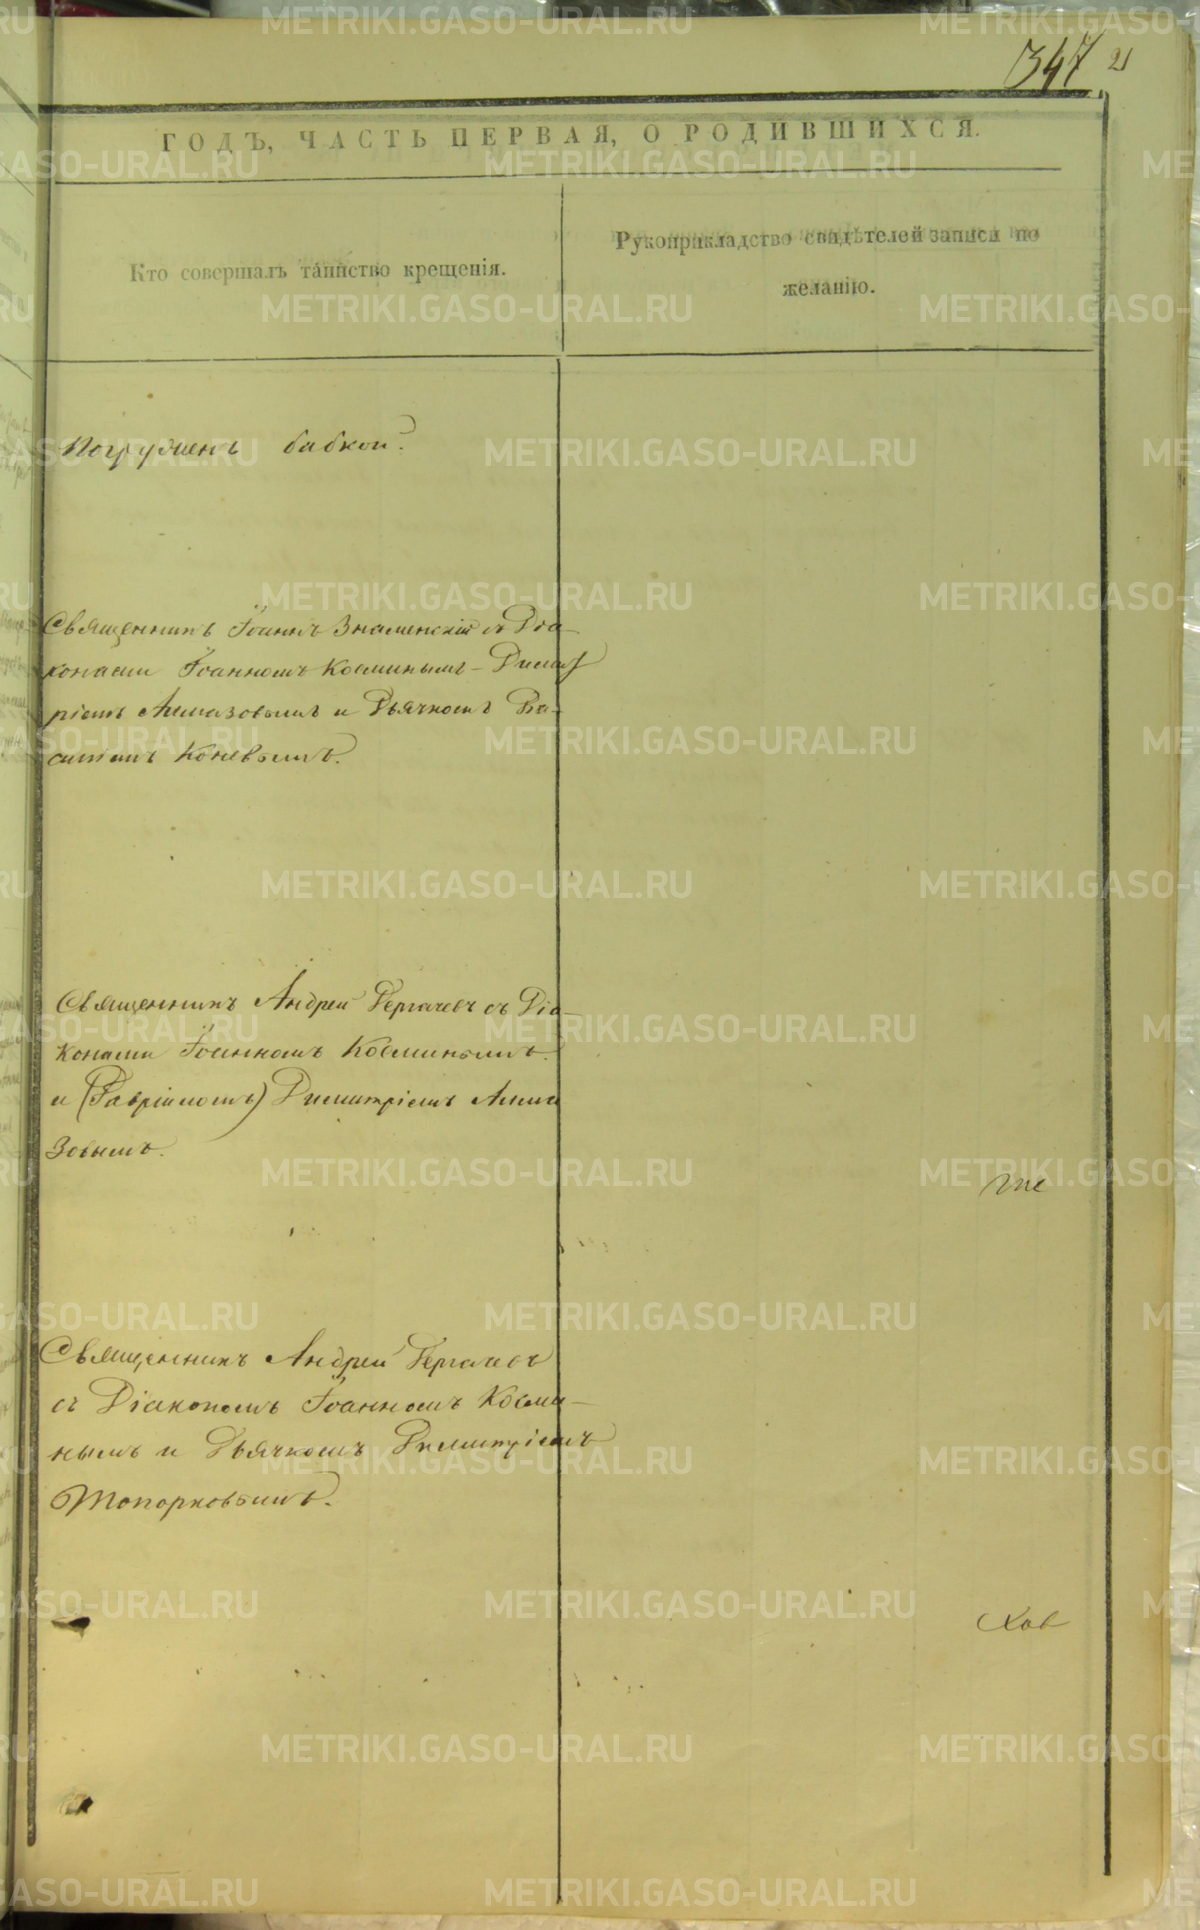 347 21
ГОДЪ, ЧАСТЬ ПЕРВАЯ, О РОДИВШИХСЯ.
Кто совершалъ таинство крещенія.
Рукоприкладство свидѣтелей записи по
желанію.
Погруженъ бабкой.
Священникъ Іоаннъ Знаменскій съ Діа-
конами Іоанномъ Косминымъ - Димит
ріемъ Алмазовымъ и Дьячкомъ Ва-
силіемъ Коневымъ.
Священникъ Андрей Дергачевъ съ Діа-
конами Іоанномъ Косминымъ
и (Гавріиломъ) Димитріемъ Алма
зовымъ.
Священникъ Андрей Дергачевъ
съ Діакономъ Іоанномъ Косми-
нымъ и Дьячкомъ Димитріемъ
Топорковымъ.
METRIKI.GASO-URAL.RU